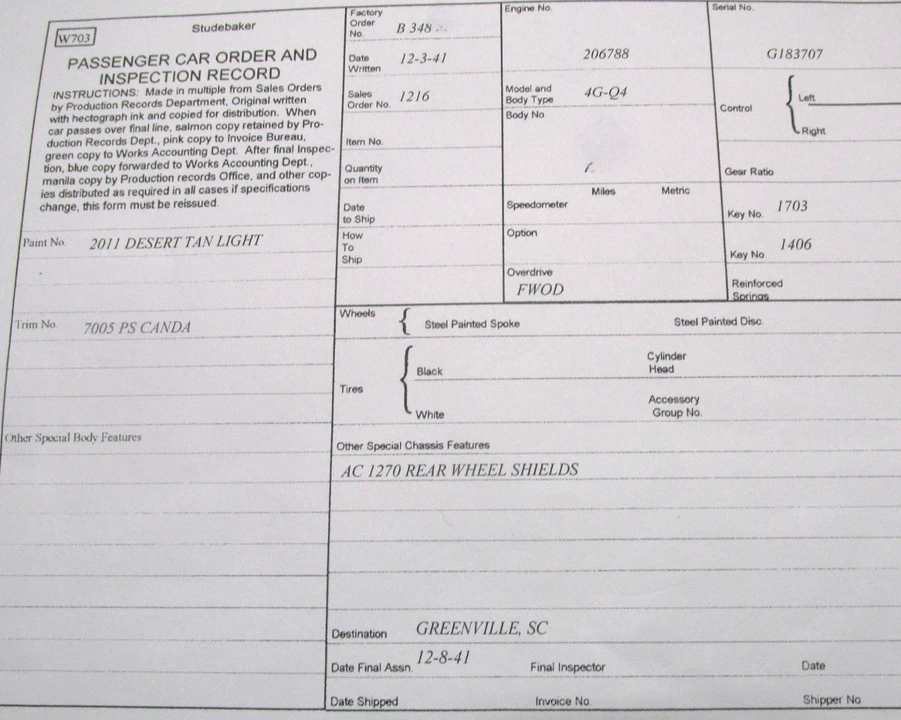 W703
Studebaker
PASSENGER CAR ORDER AND
INSPECTION RECORD
INSTRUCTIONS: Made in multiple from Sales Orders
by Production Records Department, Original written
with hectograph ink and copied for distribution. When
car passes over final line, salmon copy retained by Pro-
duction Records Dept., pink copy to Invoice Bureau,
green copy to Works Accounting Dept. After final Inspec-
tion, blue copy forwarded to Works Accounting Dept.,
manila copy by Production records Office, and other cop-
ies distributed as required in all cases if specifications
change, this form must be reissued.
Paint No. 2011 DESERT TAN LIGHT
Trim No. 7005 PS CANDA
Other Special Body Features
Factory
Order
No. B 348
Date
Written 12-3-41
Sales
Order No. 1216
Item No.
Quantity
on Item
Date
to Ship
How
To
Ship
Engine No.
206788
Model and
Body Type 4G-Q4
Body No.
Miles Metric
Speedometer
Option
Overdrive
FWOD
Serial No.
G183707
Control
Left
Right
Gear Ratio
Key No. 1703
Key No 1406
Reinforced
Springs
Wheels
Steel Painted Spoke Steel Painted Disc
Tires
Black
Cylinder
Head
White
Accessory
Group No.
Other Special Chassis Features
AC 1270 REAR WHEEL SHIELDS
Destination GREENVILLE, SC
Date Final Assn. 12-8-41 Final Inspector Date
Date Shipped Invoice No. Shipper No